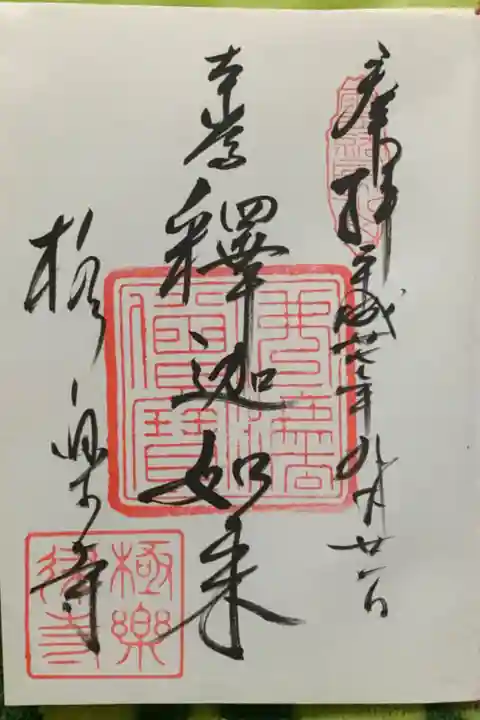 奉拝 平成廿七年九月廿一日
本尊 釋迦如来
極楽寺
極樂
律寺